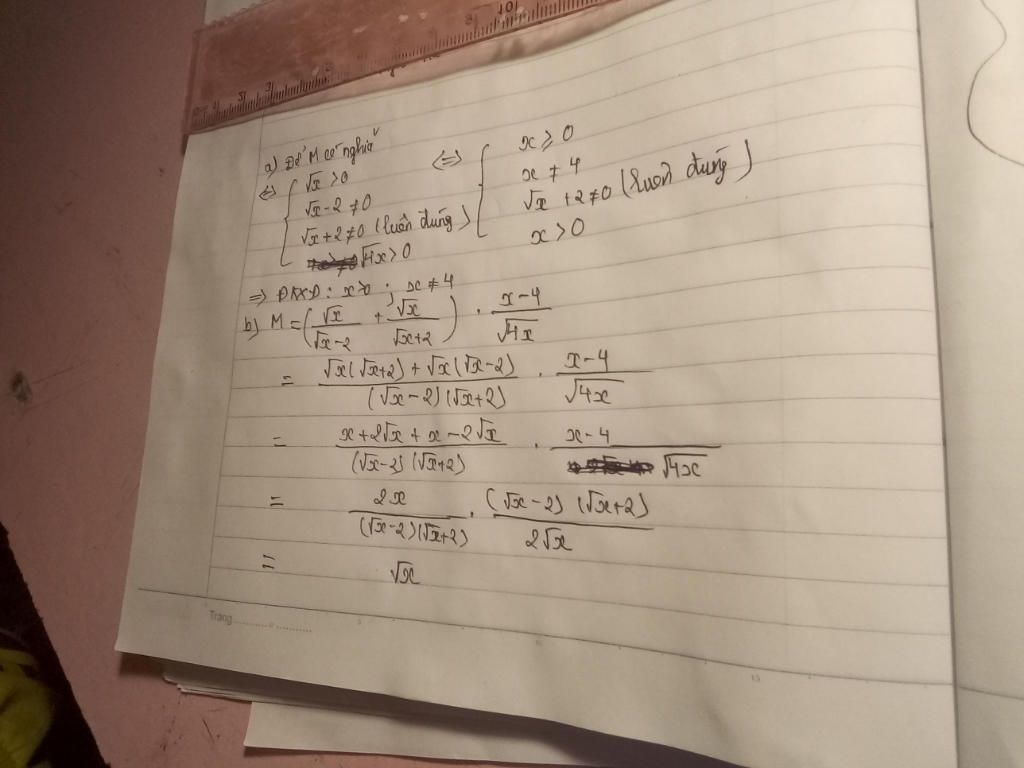 a) Để M có nghĩa
⇔ { √x > 0 ⇔ { x ≥ 0
√x - 2 ≠ 0 x ≠ 4
√x + 2 ≠ 0 (luôn đúng) √x + 2 ≠ 0 (luôn đúng)
√4x > 0 x > 0
⇒ ĐKXĐ: x > 0, x ≠ 4
b) M = (√x/(√x-2) + √x/(√x+2)) · (x-4)/√4x
= (√x(√x+2) + √x(√x-2))/((√x-2)(√x+2)) · (x-4)/√4x
= (x + 2√x + x - 2√x)/((√x-2)(√x+2)) · (x-4)/√4x
= 2x/((√x-2)(√x+2)) · ((√x-2)(√x+2))/(2√x)
= √x
Trang